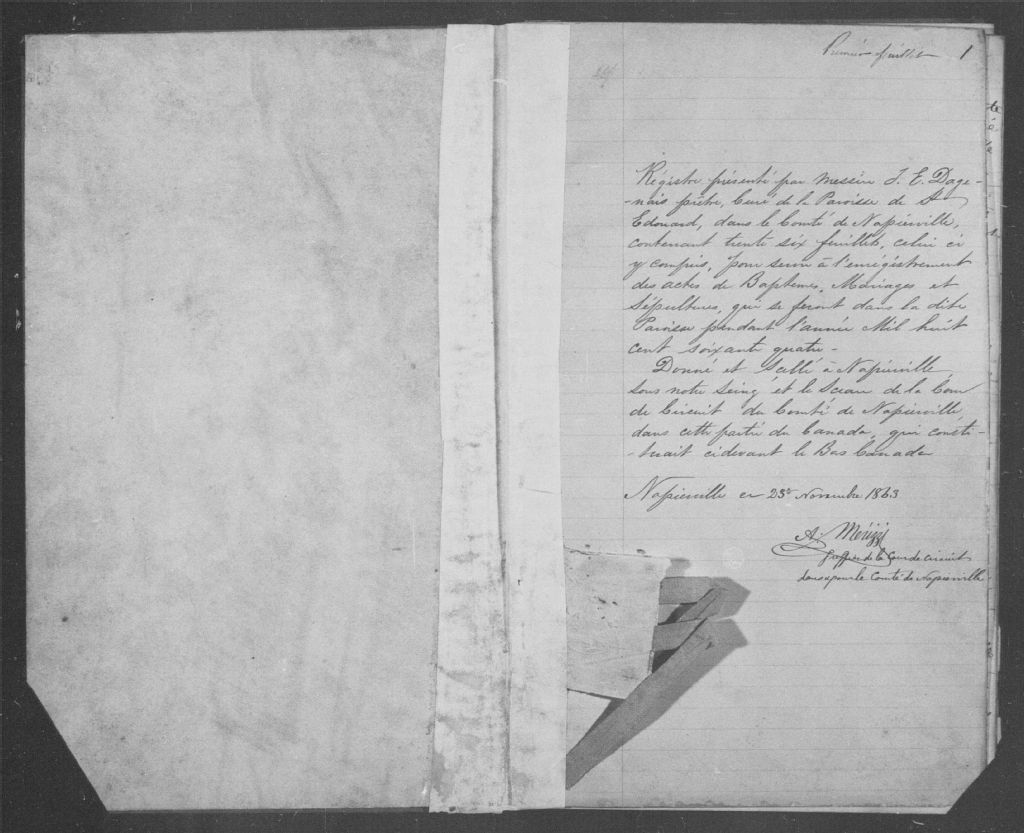 Premier feuillet 1
Régistre présenté par Messire J. E. Dage-
-nais prêtre, Curé de la Paroisse de St
Edouard, dans le Comté de Napierville,
contenant trente six feuillets, celui ci
y compris, pour servir à l'enrégistrement
des actes de Baptêmes, Mariages et
Sépultures, qui se feront dans la dite
Paroisse pendant l'année Mil huit
cent soixante quatre -
Donné et Scellé à Napierville
sous notre Seing et le Sceau de la Cour
de Circuit du Comté de Napierville,
dans cette partie du Canada, qui consti-
-tuait cidevant le Bas Canada
Napierville ce 23e Novembre 1863
A. Merizzi
Greffier de la Cour de circuit
dans & pour le Comté de Napierville